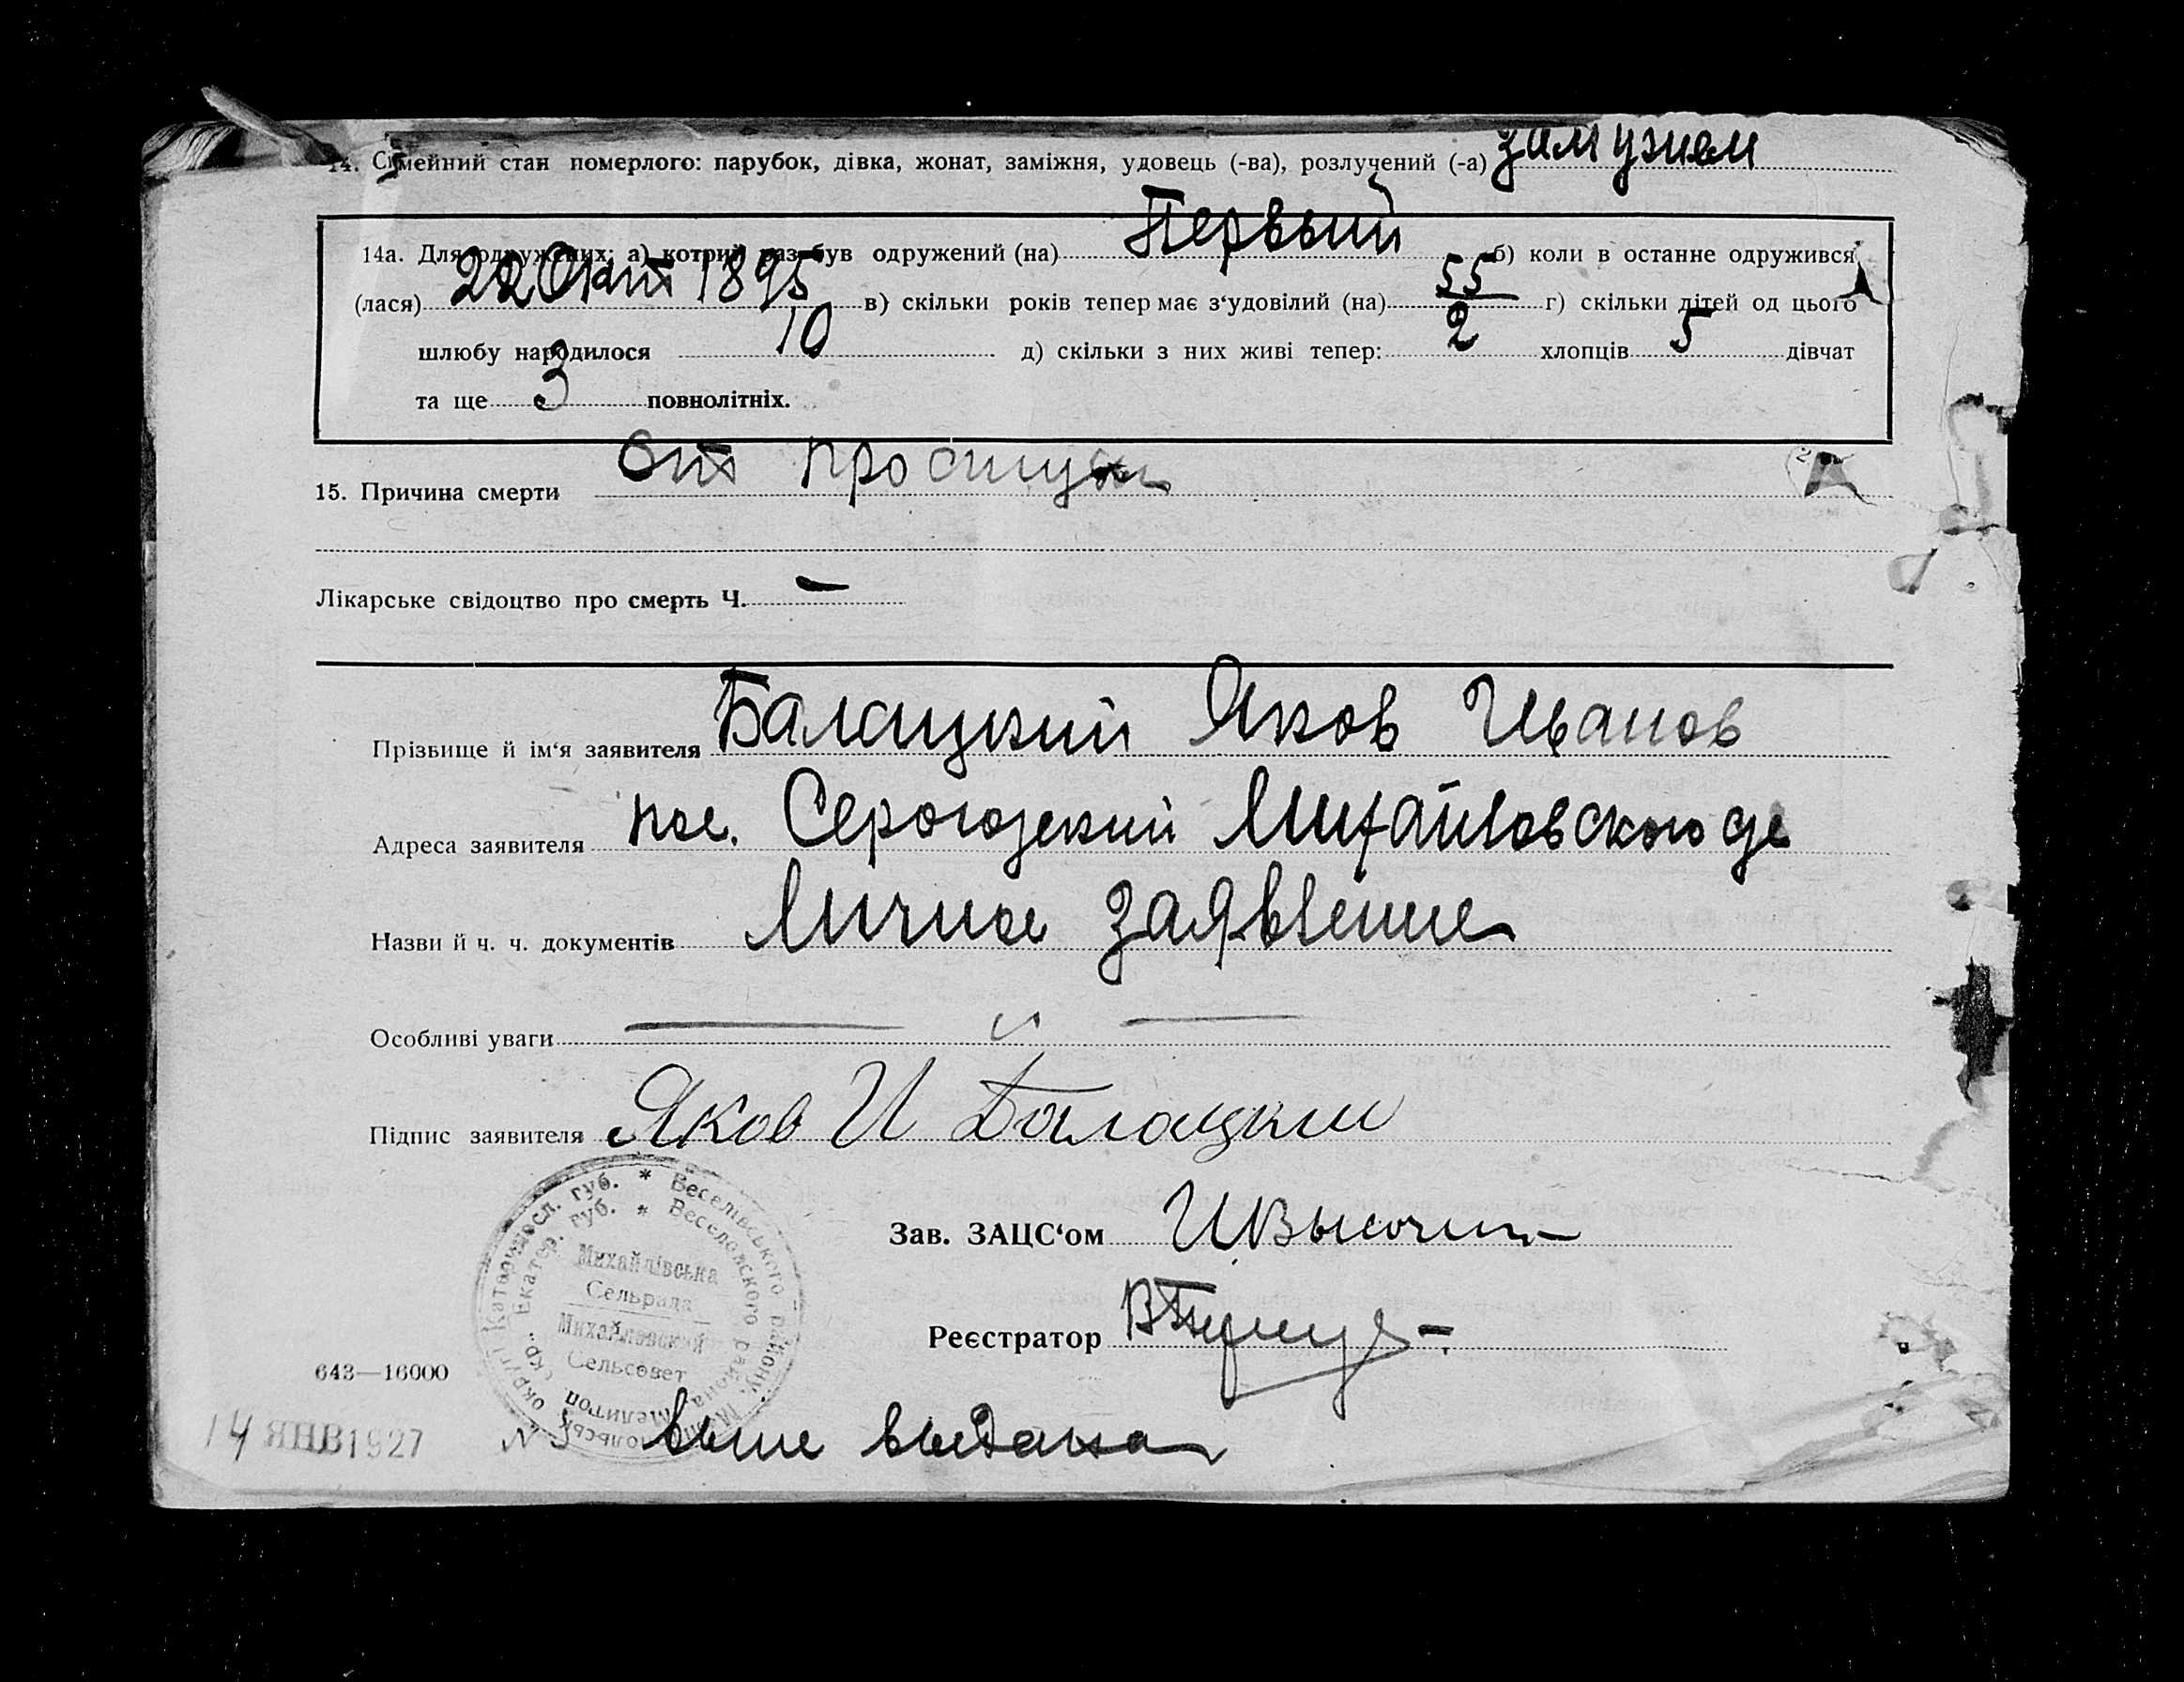 14. Сімейний стан померлого: парубок, дівка, жонат, заміжня, удовець (-ва), розлучений (-а) замужем
14а. Для одружених: а) котрий раз був одружений (на) Первый б) коли в останне одружився
(лася) 22 Окт 1895 в) скільки років тепер має з‘удовілий (на) 55 г) скільки дітей од цього
шлюбу народилося 10 д) скільки з них живі тепер: 2 хлопців 5 дівчат
та ще 3 повнолітніх.
15. Причина смерти От простуки
Лікарське свідоцтво про смерть Ч. —
Прізвище й ім‘я заявителя Балацкий Яков Иванов
Адреса заявителя пос. Серогозский Михайловского с/с
Назви й ч. ч. документів Личное заявление
Особливі уваги — „ —
Підпис заявителя Яков И Балацкий
Зав. ЗАЦС‘ом
Реєстратор
Катериносл. губ. * Веселівського району, Мелітопольськ. округ
Екатер. губ. * Веселовского района, Мелитоп. окр.
Михайлівська
Сельрада
Михайловский
Сельсовет
643—16000
14 ЯНВ 1927
№ 5 выпе выдана